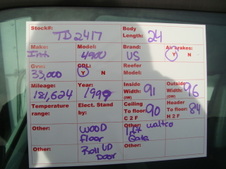 Stock#: TD2417
Body Length: 24
Make: Model: 4900
Brand: US
Air brakes: Y N
Gvw: 33,000
CDL: Y N
Reefer Model:
Mileage: 181,624
Year: 1999
Inside Width: 91
Outside Width: 96
Temperature range:
Elect. Stand by:
Ceiling To floor: 90
C 2 F
Header To floor: 84
H 2 F
Other: Wood floor
Roll UP Door
Other: waltco
lift Gate
Other:
Other: